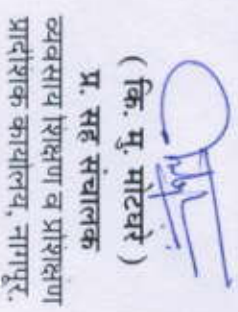 ( कि. मु. मोटघरे )
प्र. सह संचालक
व्यवसाय शिक्षण व प्रशिक्षण
प्रादेशिक कार्यालय, नागपूर.